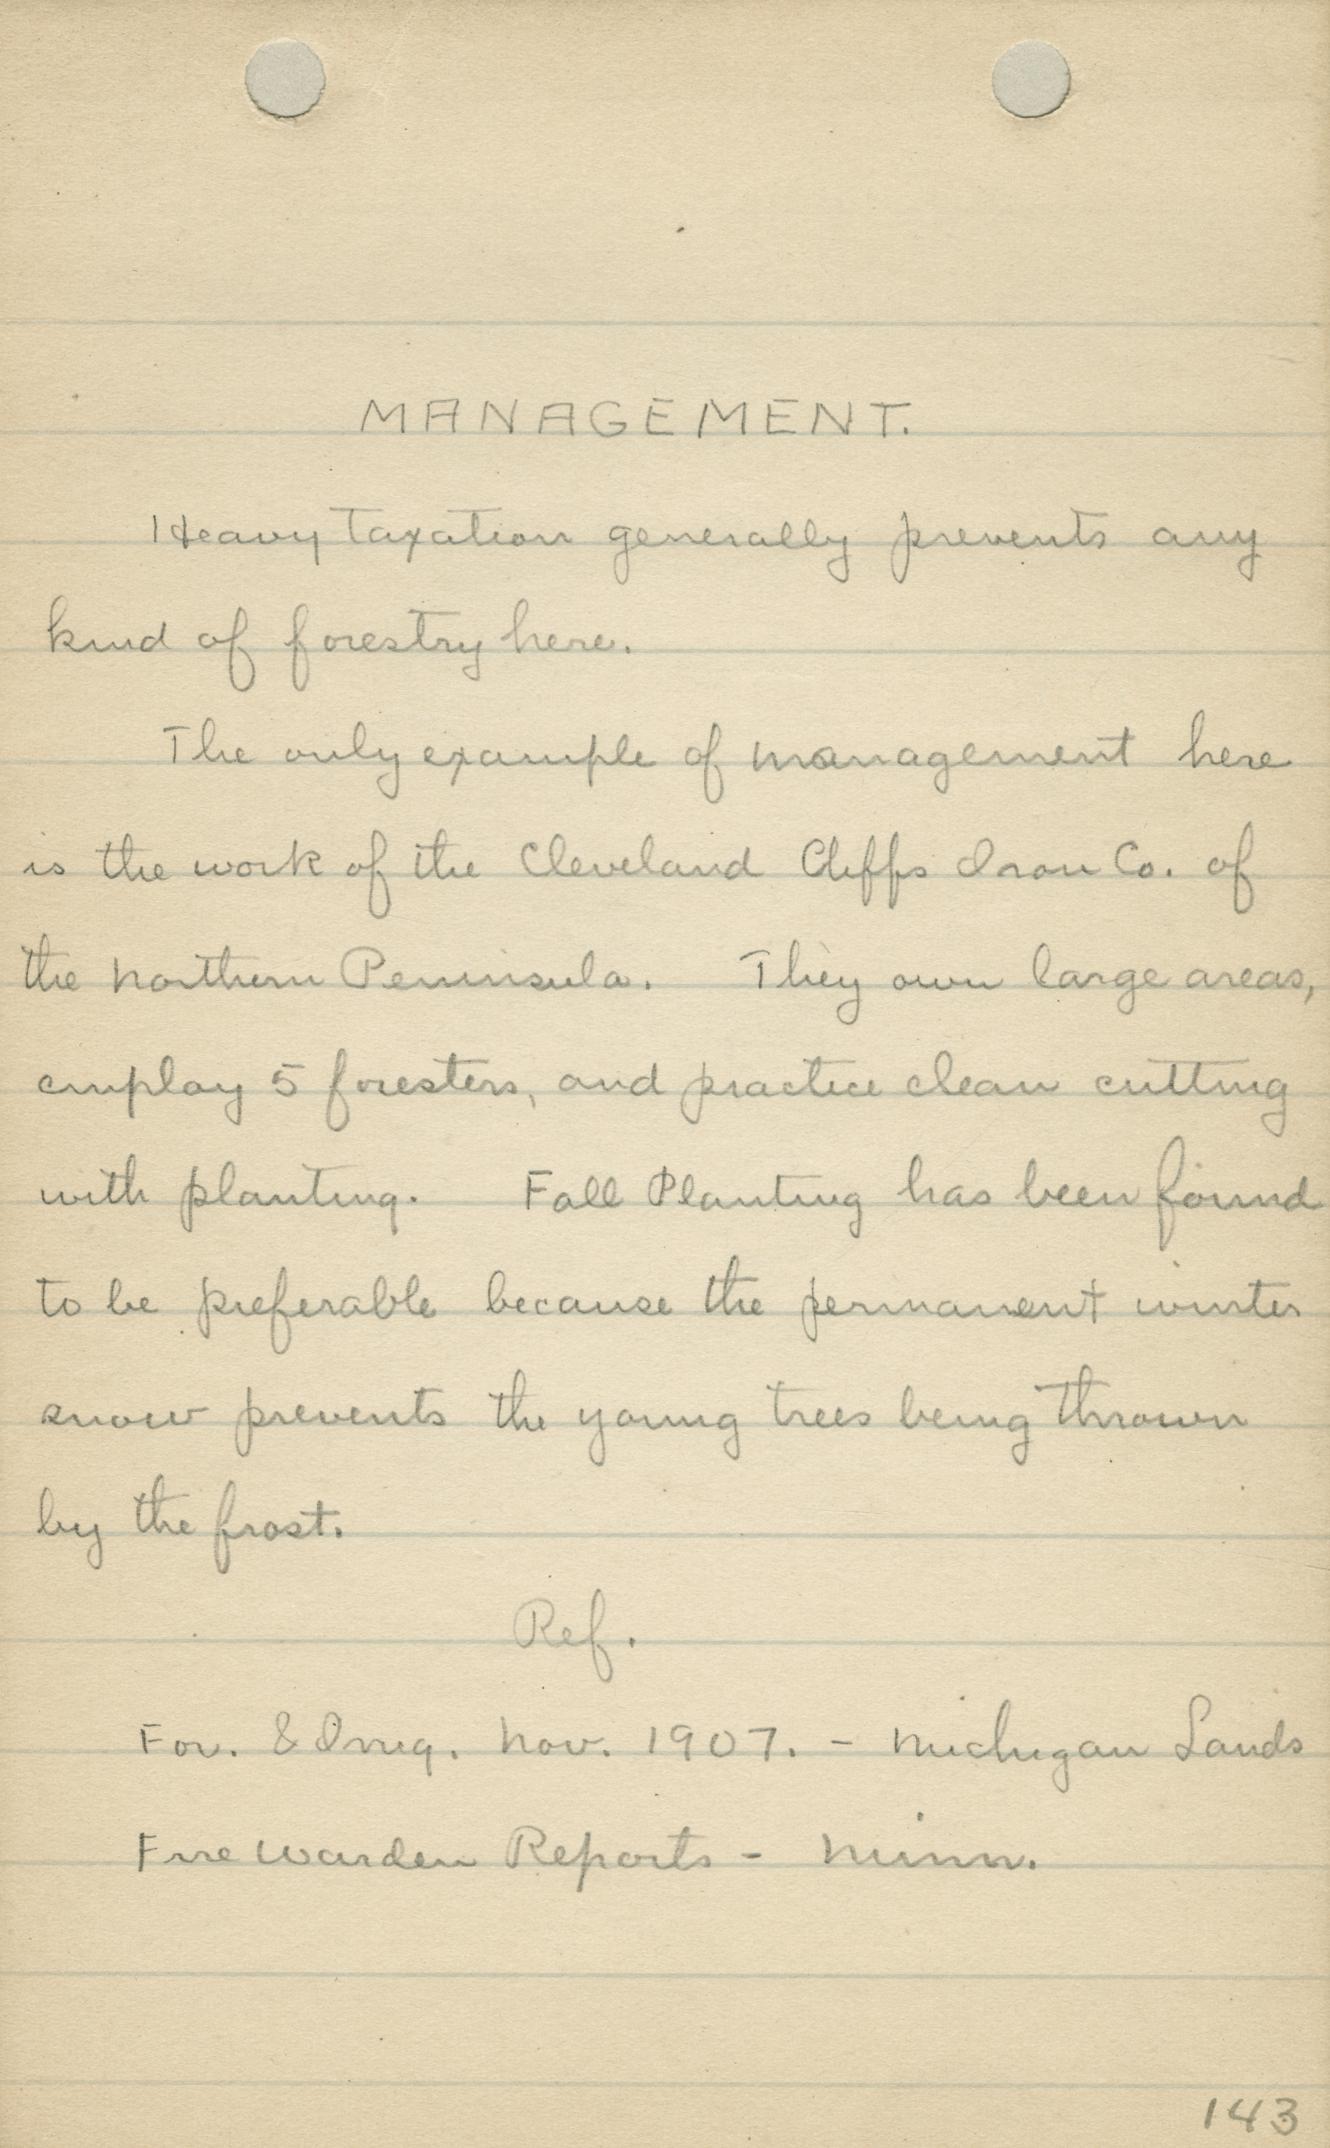 MANAGEMENT.
Heavy Taxation generally prevents any
kind of forestry here.
The only example of management here
is the work of the Cleveland Cliffs Iron Co. of
the Northern Peninsula. They own large areas,
employ 5 foresters, and practice clean cutting
with planting. Fall Planting has been found
to be preferable because the permanent winter
snow prevents the young trees being thrown
by the frost.
Ref.
For. & Irrig. Nov. 1907. - Michigan Lands
Fire Warden Reports - Minn.
143